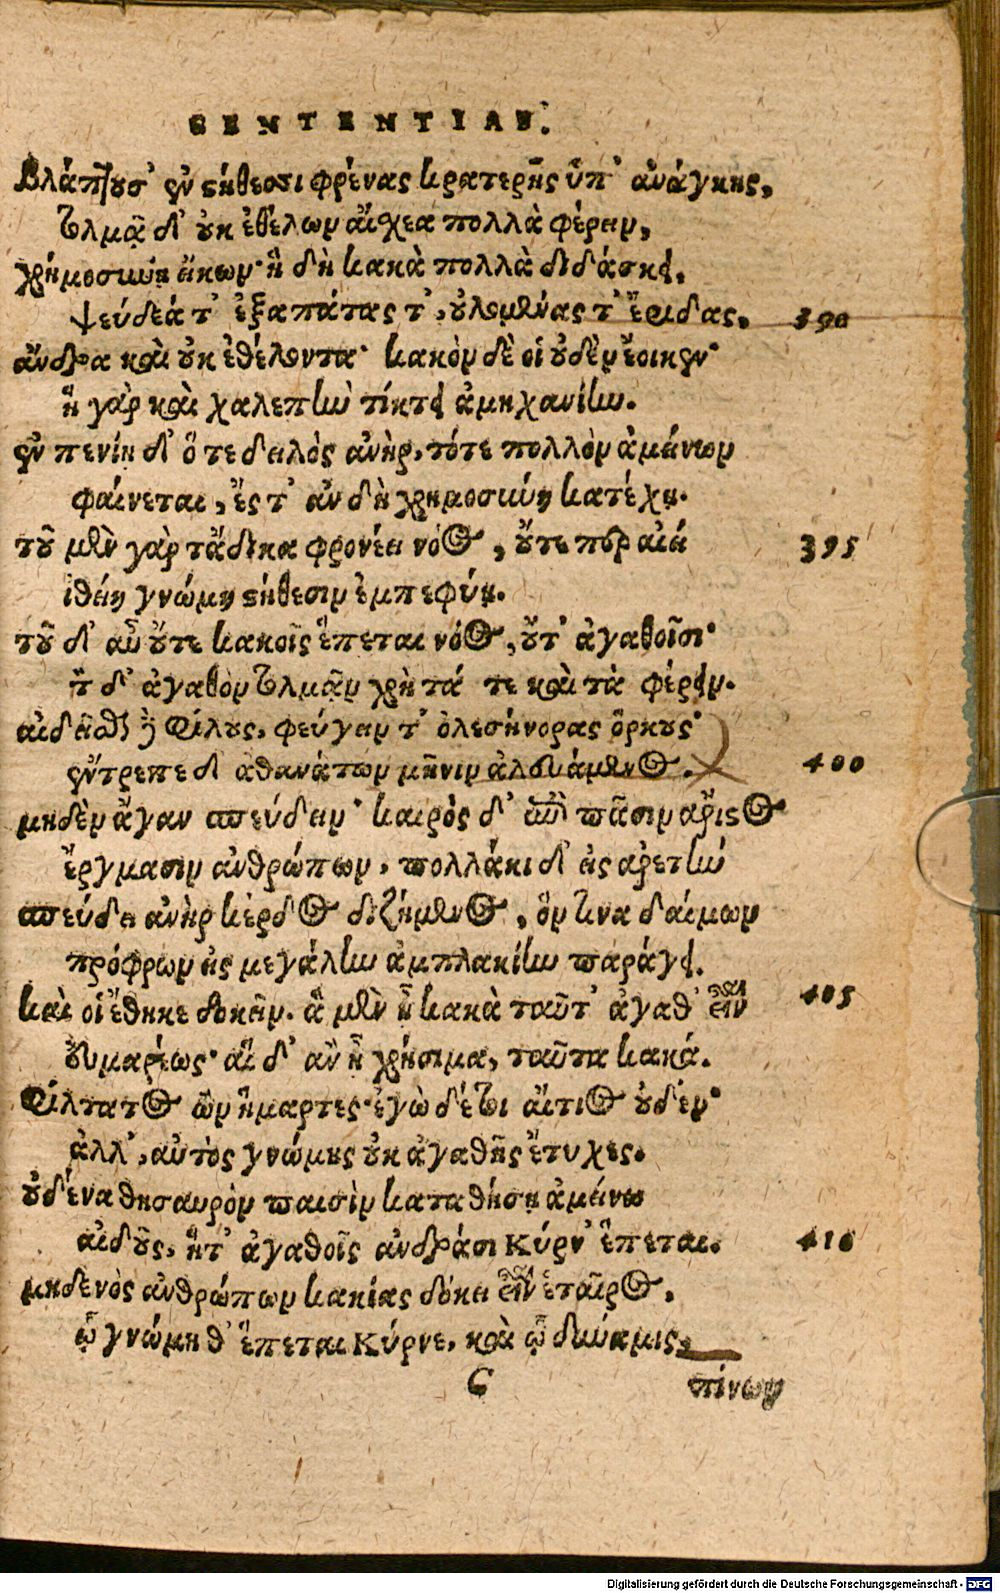 SENTENTIAE.
Βλάπτουσ' ἐν στήθεσσι φρένας κρατερῆς ὑπ' ἀνάγκης,
τολμᾷ δ' οὐκ ἐθέλων αἴσχεα πολλὰ φέρειν,
χρήμοσύνῃ εἴκων· ἣ δὴ κακὰ πολλὰ διδάσκει,
ψεύδεά τ' ἐξαπάτας τ', οὐλομένας τ' ἔριδας, 390
ἄνδρα καὶ οὐκ ἐθέλοντα· κακὸν δὲ οἱ οὐδὲν ἔοικεν·
ἣ γὰρ καὶ χαλεπὴν τίκτει ἀμηχανίην.
ἐν πενίῃ δ' ὅ τε δειλὸς ἀνὴρ, τότε πολλὸν ἀμείνων
φαίνεται, ἔς τ' ἂν δὴ χρημοσύνη κατέχῃ.
τοῦ μὲν γὰρ τἄδικα φρονέει νόος, οὔτε περ αἰεί 395
ἰθείη γνώμη στήθεσιν ἐμπεφύῃ.
τοῦ δ' αὖ οὔτε κακοῖς ἕπεται νόος, οὔτ' ἀγαθοῖσι·
τὸ δ' ἀγαθὸν τολμᾶν χρὴ τά τε καὶ τὰ φέρειν.
αἰδεῖσθαι δὲ φίλους, φεύγειν τ' ὀλεσήνορας ὅρκους·
ἔντρεπε δ' ἀθανάτων μῆνιν ἀλευάμενος. 400
μηδὲν ἄγαν σπεύδειν· καιρὸς δ' ἐπὶ πᾶσιν ἄριστος
ἔργμασιν ἀνθρώπων, πολλάκι δ' εἰς ἀρετὴν
σπεύδει ἀνὴρ κέρδος διζήμενος, ὅν τινα δαίμων
πρόφρων εἰς μεγάλην ἀμπλακίην παράγει.
καὶ οἱ ἔθηκε δοκεῖν. ἃ μὲν ᾖ κακὰ ταῦτ' ἀγαθ' εἶναι 405
εὐμαρέως· αἳ δ' ἂν ᾖ χρήσιμα, ταῦτα κακά.
Φίλτατος ὢν ἥμαρτες· ἐγὼ δέ τοι αἴτιος οὐδέν·
ἀλλ', αὐτὸς γνώμης οὐκ ἀγαθῆς ἔτυχες.
οὐδένα θησαυρὸν παισὶν καταθήσῃ ἀμείνω
αἰδοῦς, ἥτ' ἀγαθοῖς ἀνδράσι Κύρν' ἕπεται. 410
μηδενὸς ἀνθρώπων κακίας δόκει εἶναι ἑταῖρος,
ᾧ γνώμη θ' ἕπεται Κύρνε, καὶ ᾧ δύναμις.
C πίνων
Digitalisierung gefördert durch die Deutsche Forschungsgemeinschaft - DFG